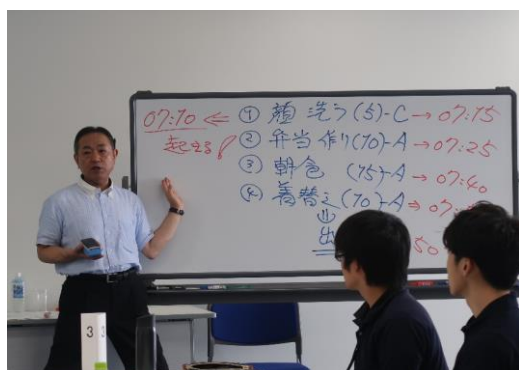 07:10 ⇐ ① 顔 洗う(5)-C → 07:15
起きる! ② 弁当 作り(10)-A → 07:25
③ 朝食 (15)-A → 07:40
④ 着替え(10)-A → 07:
⇓
出
50
3 3